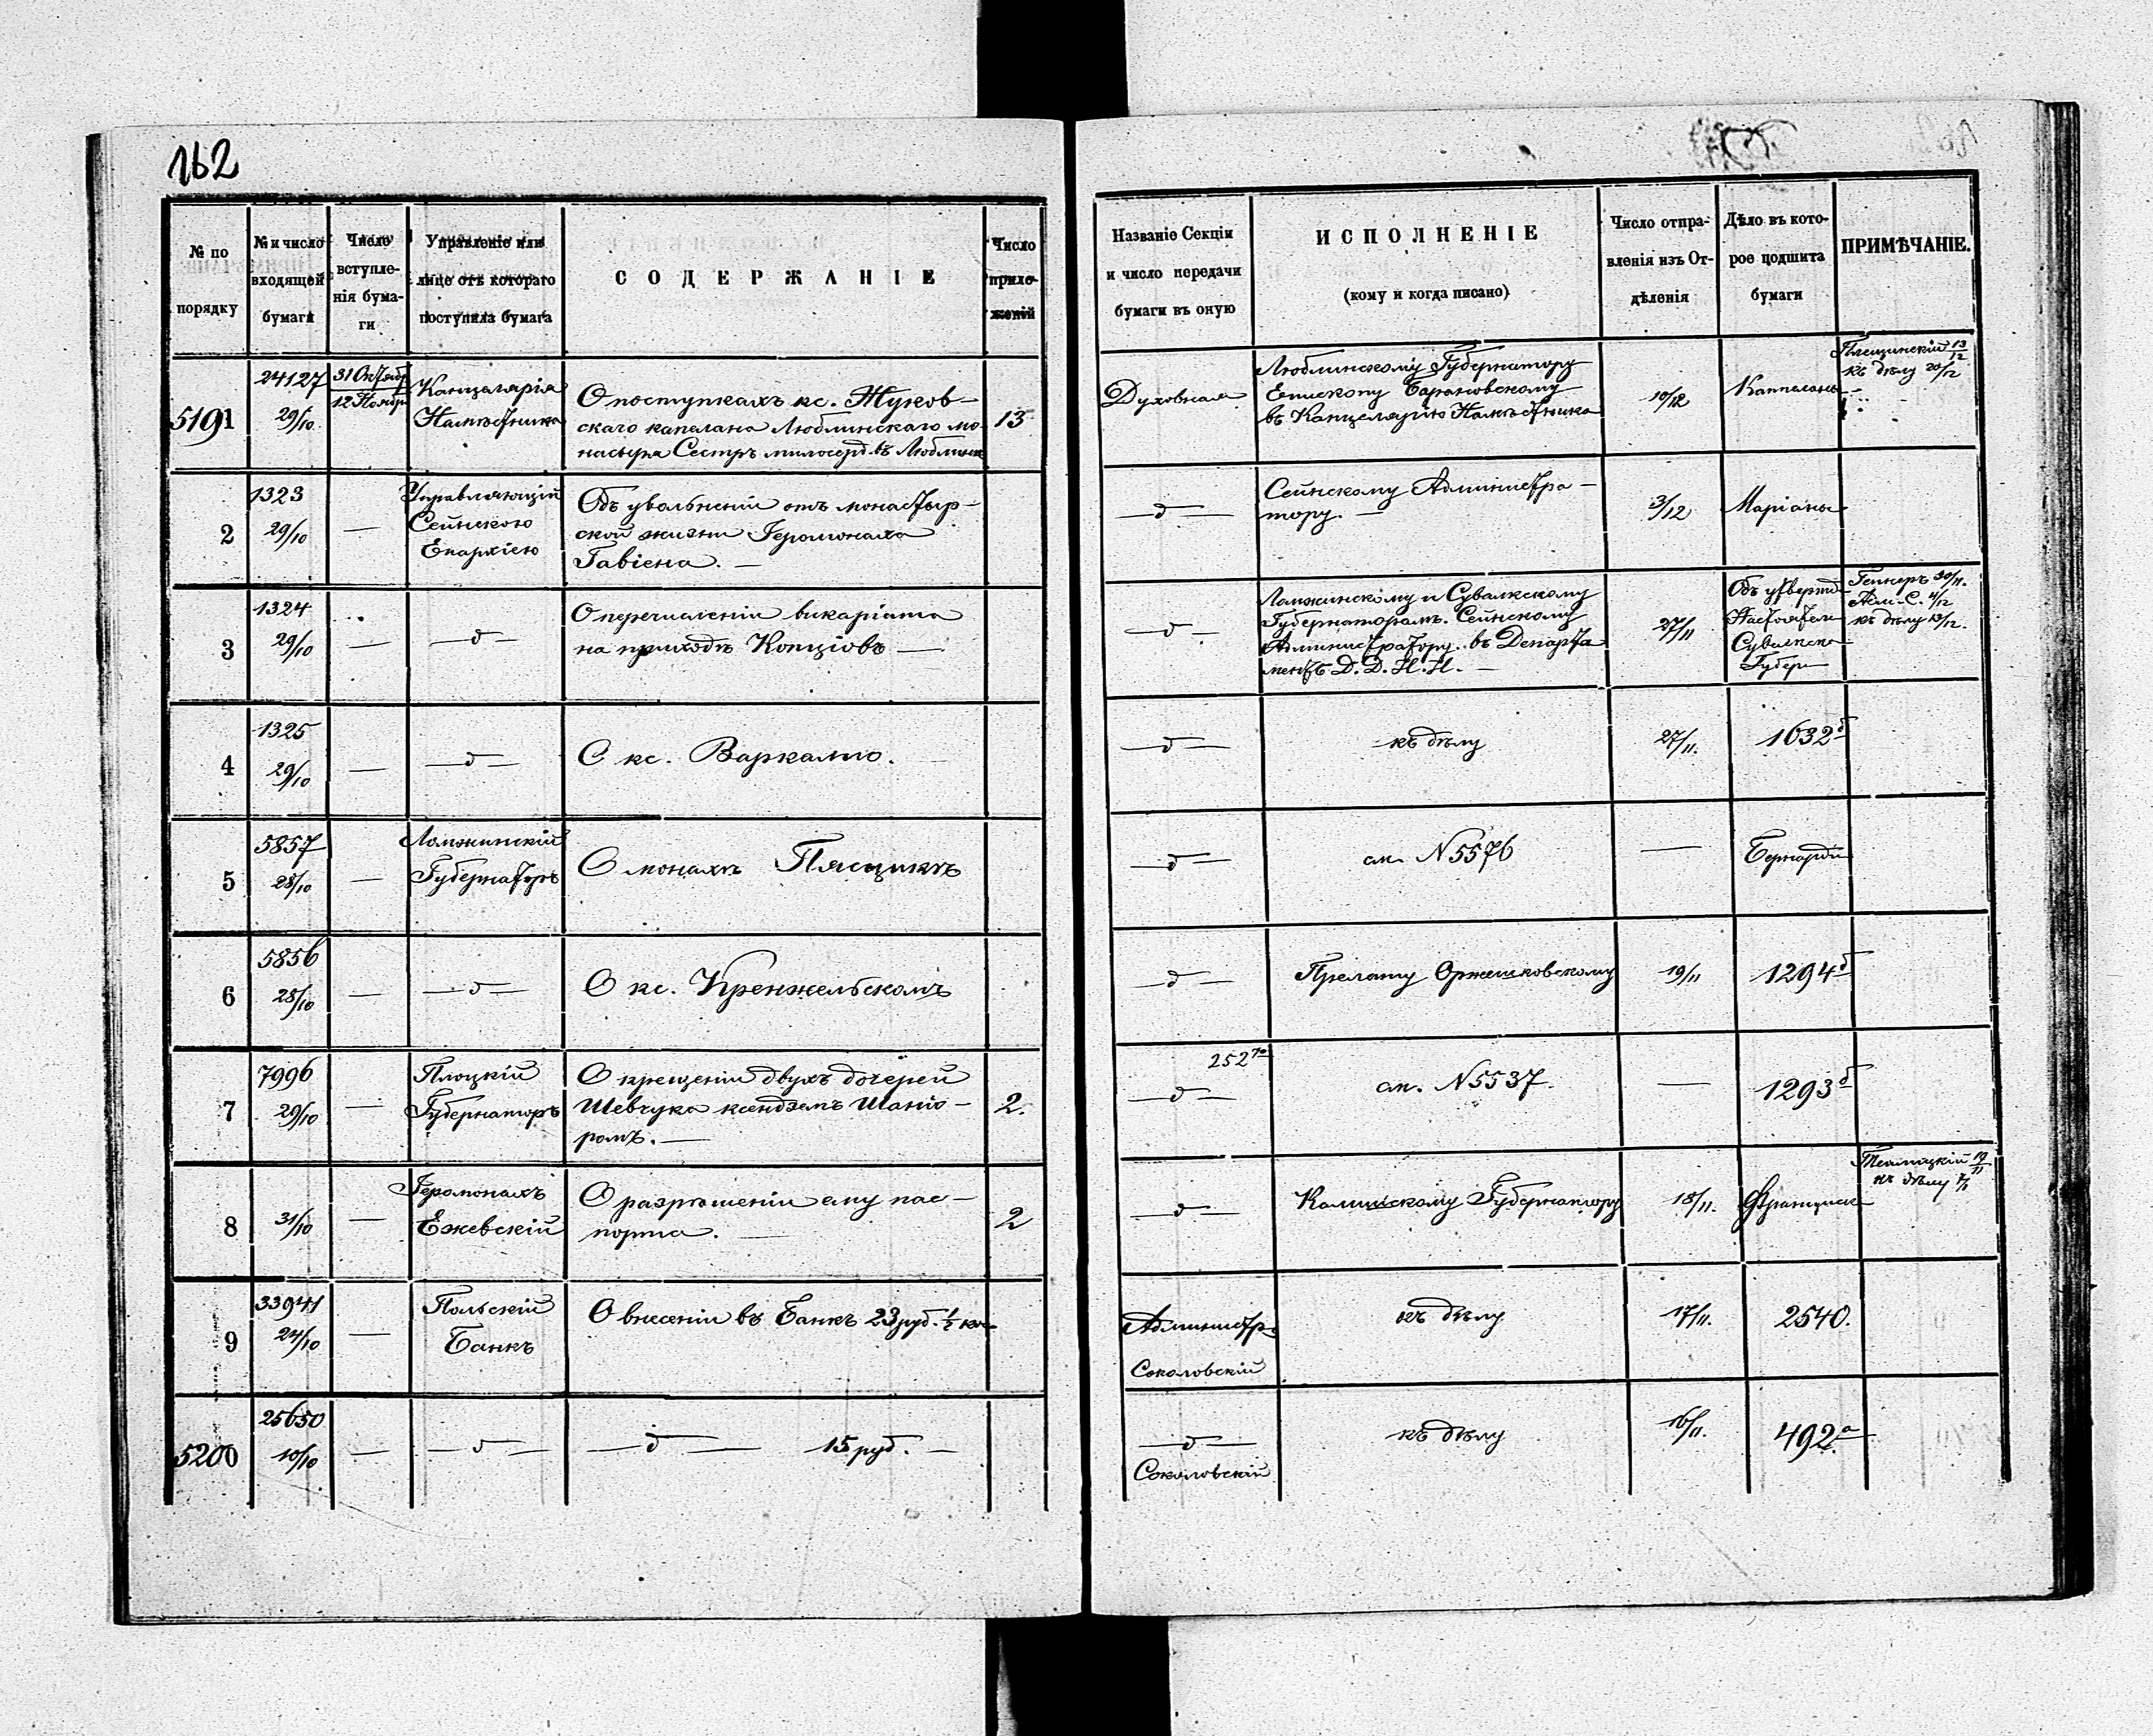 162
№ по порядку
№ и число входящей бумаги
Число вступле-
нія бума-
ги
Управленіе или
лице отъ котораго
поступила бумага
СОДЕРЖАНІЕ
Число
прило-
женій
Названіе Секціи
и число передачи
бумаги въ оную
ИСПОЛНЕНІЕ
(кому и когда писано)
Число отпра-
вленія изъ От-
дѣленія
Дѣло въ кото-
рое подшита
бумаги
ПРИМѢЧАНІЕ.
5191
24127
29/10
31 Октябр
12 Ноябр
Канцелярія
Намѣстника
О поступкахъ кс. Жуков-
скаго капелана Люблинскаго мо-
настыря Сестръ милосерд. въ Люблинѣ
13
Духовная
Люблинскому Губернатору
Епископу Барановскому
въ Канцелярію Намѣстника
10/12
Капеланы
13/12
къ дѣлу 20/12
2
1323
29/10
—
Управляющій
Сейнскою
Епархіею
Объ увольненіи отъ монастыр-
ской жизни Іеромонаха
Гавіена. —
— д —
Сейнскому Администра-
тору. —
3/12
Маріаны
3
1324
29/10
—
— д —
О перечисленіи викаріата
на приходъ Копціовъ —
— д —
Ломжинскому и Сувалкскому
Губернаторамъ. Сейнскому
Администратору. въ Департа
ментъ Д. Д. И. И. —
27/11
Объ утвержд
Настоятел
Сувалкско
Губер
Гепнеръ 30/11.
Адм. С. 4/12
къ дѣлу 13/12.
4
1325
29/10
—
— д —
О кс. Варкалло.
— д —
къ дѣлу
27/11.
1632 б
5
5857
28/10
—
Ломжинскій
Губернаторъ
О монахѣ Пясцикѣ
— д —
см. N 5576
—
Бернарди
6
5856
28/10
—
— д —
О кс. Кренжельскомъ
— д —
Прелату Оржешковскому
19/11
1294 б
7
7996
29/10
—
Плоцкій
Губернаторъ
О крещеніи двухъ дочерей
Шевчука ксендземъ Шапіо-
ромъ. —
2.
252
— д —
см. N 5537.
—
1293 б
8
31/10
—
Іеромонахъ
Ежевскій
О разрѣшеніи ему пас-
порта. —
2
— д —
Калишскому Губернатору
18/11.
Францискан
19/11
къ дѣлу
9
33941
24/10
—
Польскій
Банкъ
О внесеніи въ Банкъ 23 руб. 1/2 коп
Администр.
Соколовскій
къ дѣлу
17/11.
2540.
5200
25650
10/10
—
— д —
— д — 15 руб. —
— д —
Соколовскій
къ дѣлу
16/11.
492 а